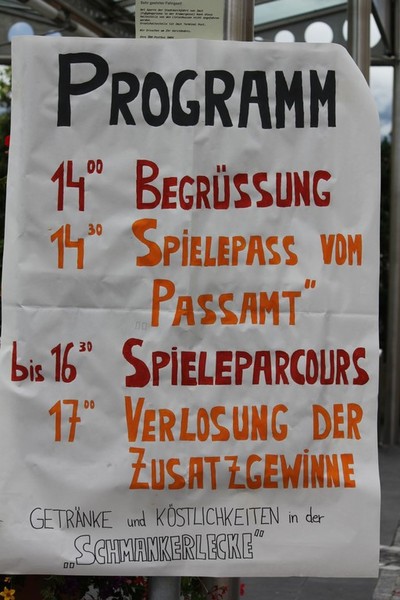 PROGRAMM
14⁰⁰ BEGRÜSSUNG
14³⁰ SPIELEPASS VOM
„PASSAMT"
bis 16³⁰ SPIELEPARCOURS
17⁰⁰ VERLOSUNG DER
ZUSATZGEWINNE
GETRÄNKE und KÖSTLICHKEITEN in der
„SCHMANKERLECKE"